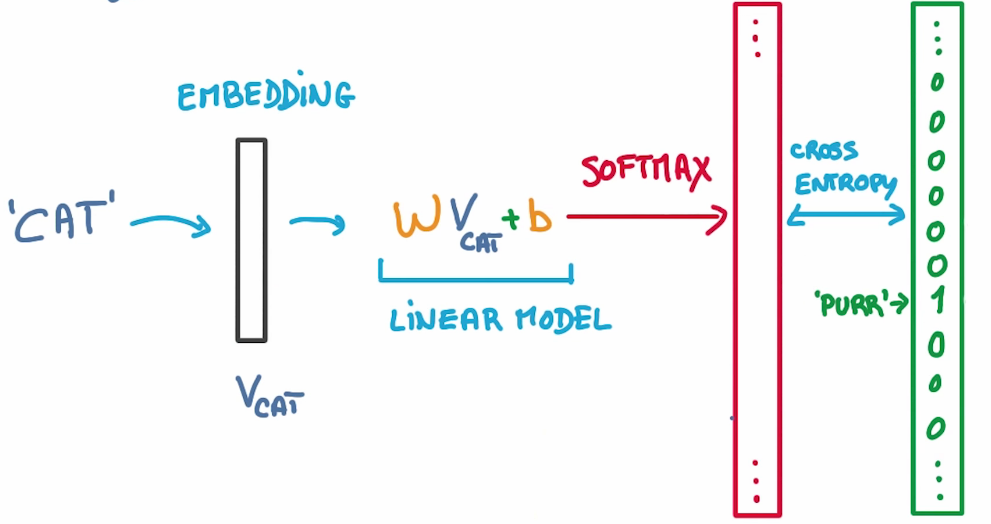 EMBEDDING
'CAT'
V CAT
W V CAT + b
LINEAR MODEL
SOFTMAX
CROSS
ENTROPY
'PURR'→
0
0
0
0
0
0
1
0
0
0